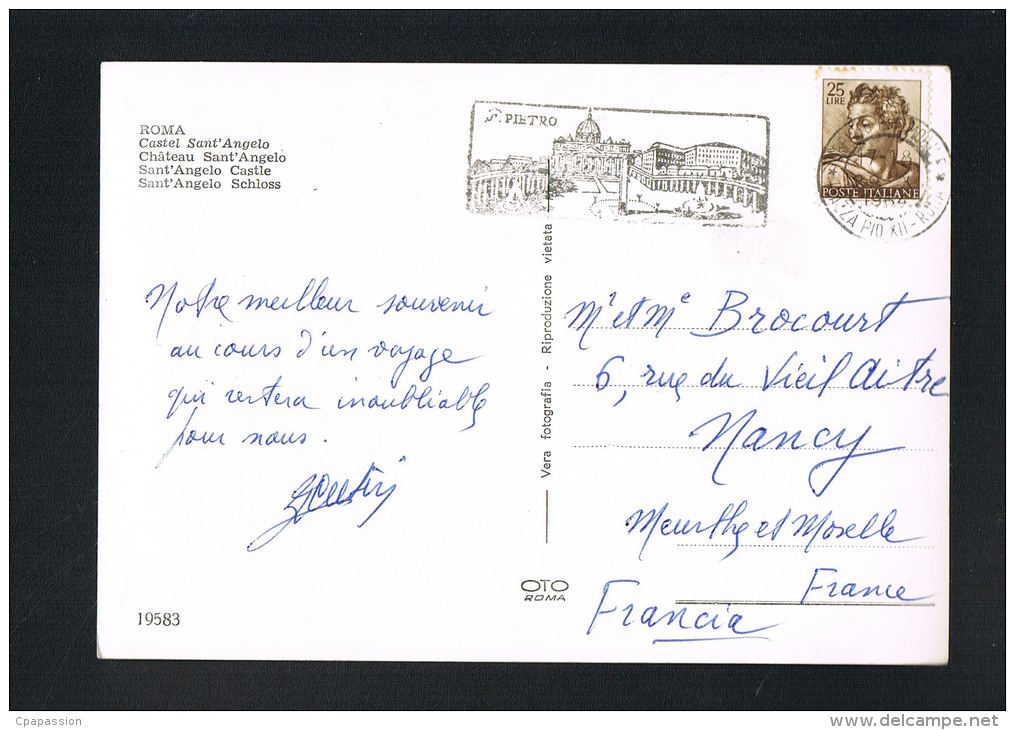 ROMA
Castel Sant'Angelo
Château Sant'Angelo
Sant'Angelo Castle
Sant'Angelo Schloss
S. PIETRO
25
LIRE
POSTE ITALIANE
PIAZZA PIO XII - ROMA
Notre meilleur souvenir
au cours d'un voyage
qui restera inoubliable
pour nous.
Vera fotografia - Riproduzione vietata
Mr et Me Brocourt
6, rue du Vieil Aitre
Nancy
Meurthe et Moselle
France
Francia
OTO
ROMA
19583
Cpapassion
delcampe.net